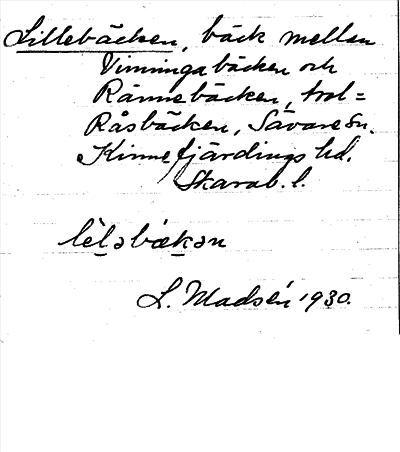 Lillebäcken, bäck mellan
Vinninga bäcken och
Rännebäcken, trol=
Råsbäcken, Sävare sn.
Kinnefjärdings hd.
Skarab. l.
lèl̠əbækən
L. Madsén 1930.